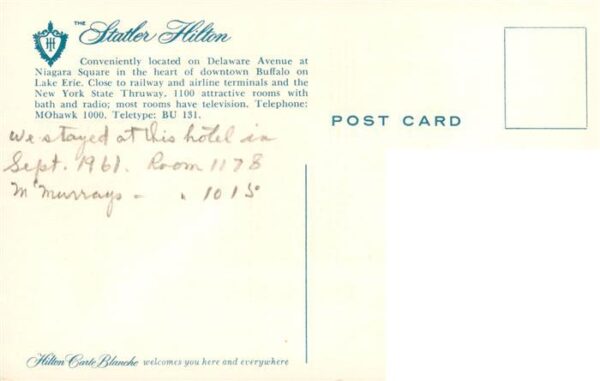 THE Statler Hilton
Conveniently located on Delaware Avenue at
Niagara Square in the heart of downtown Buffalo on
Lake Erie. Close to railway and airline terminals and the
New York State Thruway. 1100 attractive rooms with
bath and radio; most rooms have television. Telephone:
MOhawk 1000. Teletype: BU 131.
POST CARD
We stayed at this hotel in
Sept. 1961. Room 1178
McMurrays - " 1015
Hilton Carte Blanche welcomes you here and everywhere